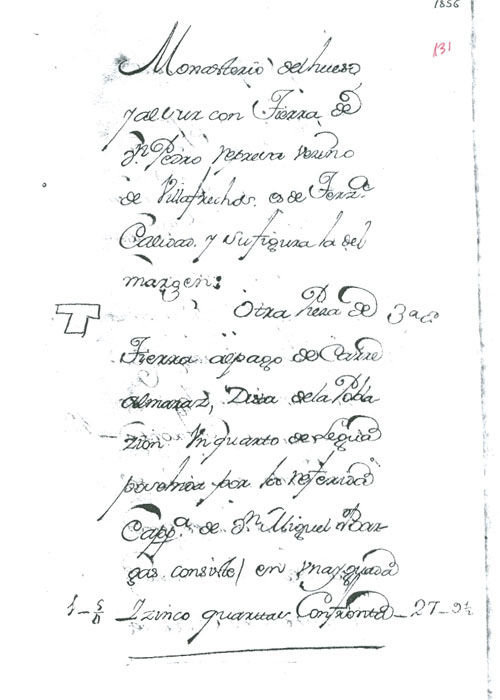 1856
131
Monasterio del hueso
y al Zur con Tierra de
Dn Pedro Pereira vezino
de Villafrechos. es de Terza
Calidad. y su figura la del
margen:
Otra Pieza de 3a de
Tierra al pago de Carre
almaraz, Dista de la Pobla
zion Un quarto de Legua
posehida por la referida
Capp.a de Dn Miguel Bar
gas consiste en una yguada
1-5/D Y zinco quartas Confronta 27-9½